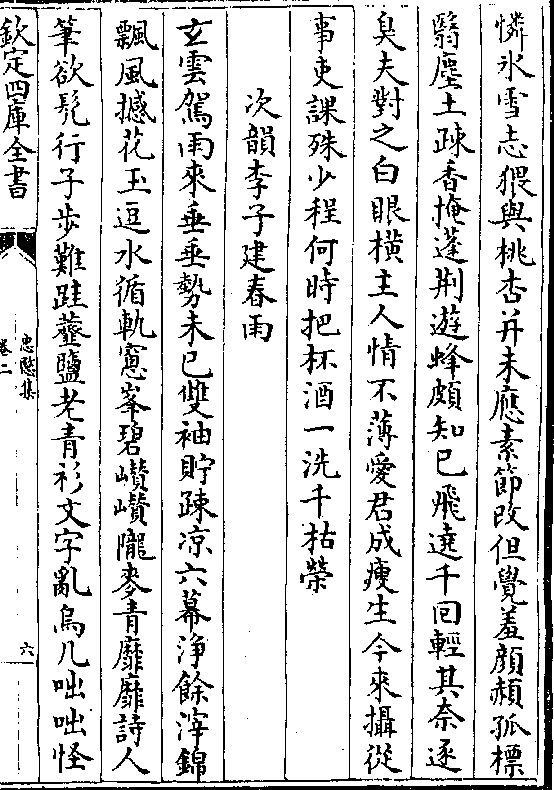 憐氷雪志猥與桃杏并未應素節改但覺羞顔頳孤標
翳塵土疎香掩蓬荆遊蜂頗知已飛遶千回輕其奈逐
臭夫對之白眼橫主人情不薄愛君成瘦生今來攝從
事吏課殊少程何時把杯酒一洗千枯榮
次韻李子建春雨
玄雲駕雨來垂垂勢未已雙袖貯疎凉六幕浄餘滓錦
飄風撼花玉逗水循軌窻峯碧巑巑隴麥青靡靡詩人
筆欲髠行子步難跬虀鹽老青衫文字亂烏几咄咄怪
欽定四庫全書
忠愍集
卷二
六